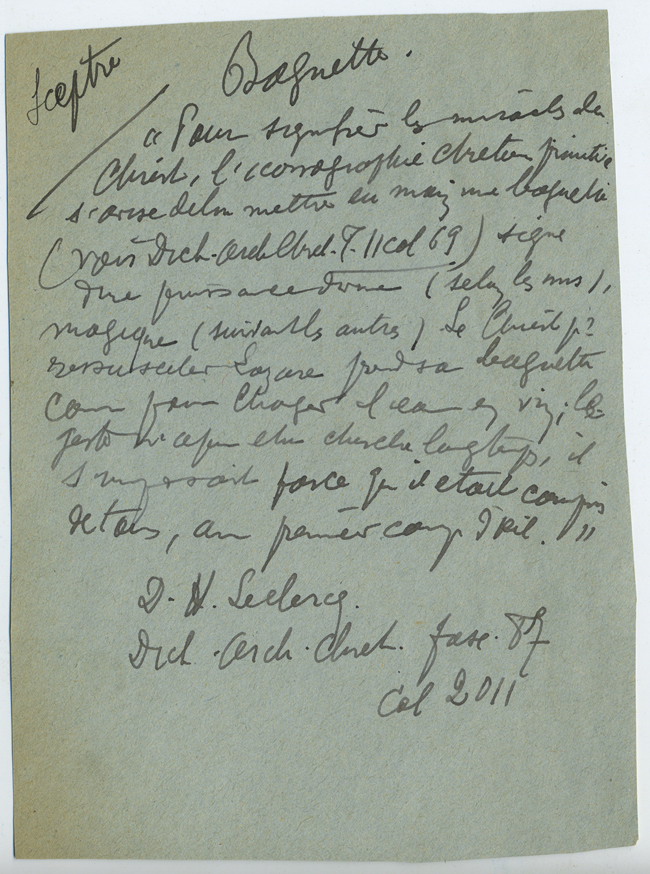 Sceptre
Baguette.
« Pour signifier les miracles du
Christ, l'iconographie chretien primitive
s'avise de lui mettre en main une baguette
(voir Dict. Arch Chret. T. II col 69) signe
d'une puissance divine (selon les uns),
magique (suivant les autres) Le Christ pr
ressusciter Lazare prend sa baguette
comme pour changer l'eau en vin; le
geste n'a pas été cherché longtemps, il
s'imposait parce qu'il etait compris
de tous, au premier coup d'œil. »
D. H. Leclercq.
Dict. Arch. Chret. fasc. 87
Col 2011